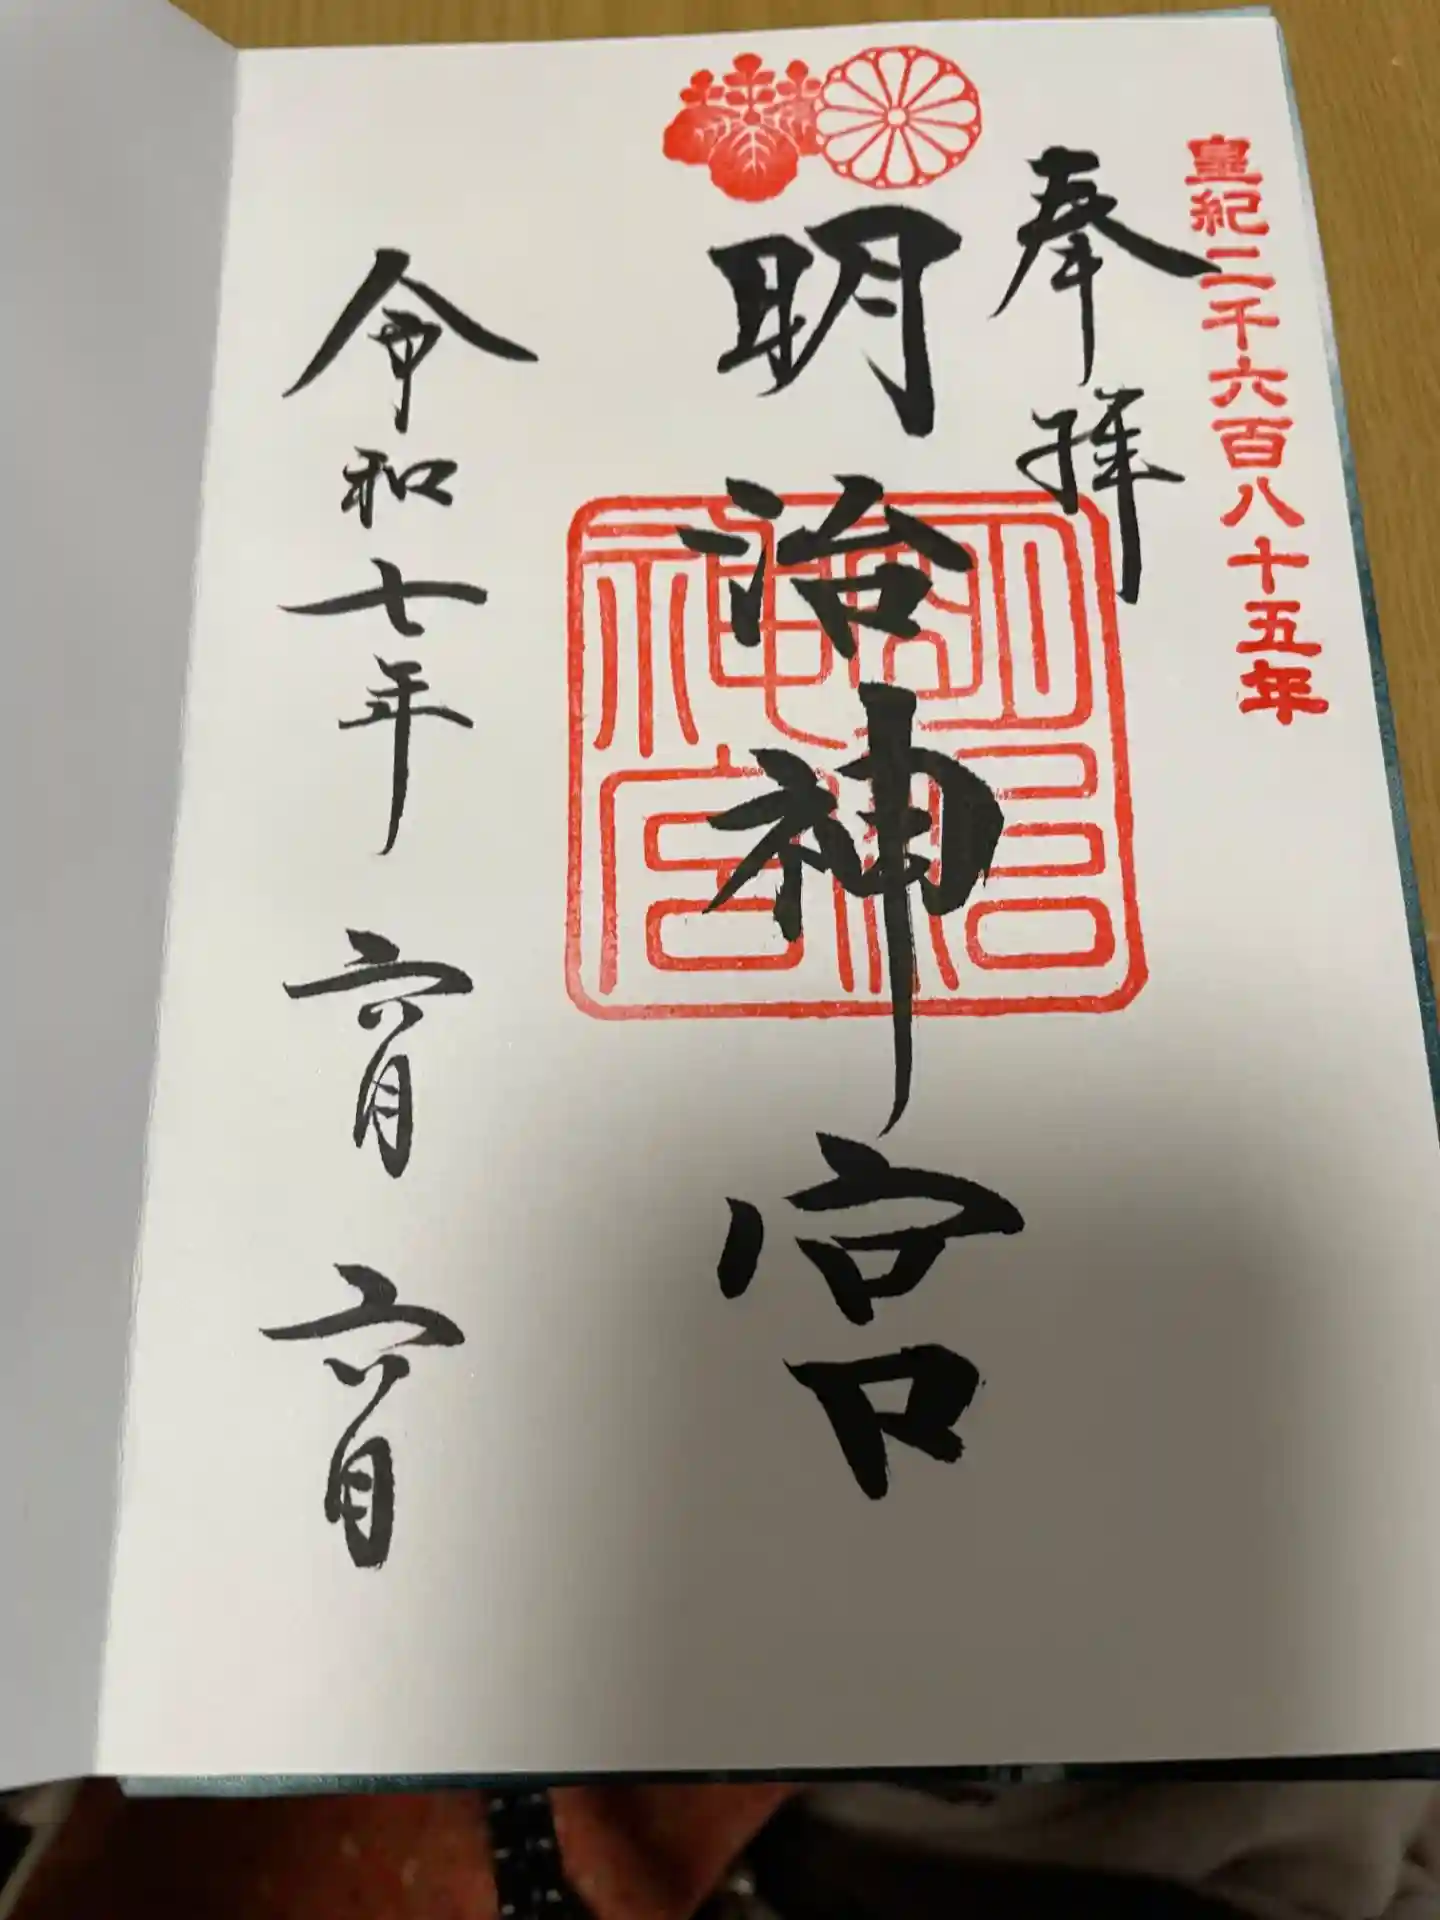 皇紀二千六百八十五年
奉拝
明治神宮
明治神宮
令和七年 六月 六日